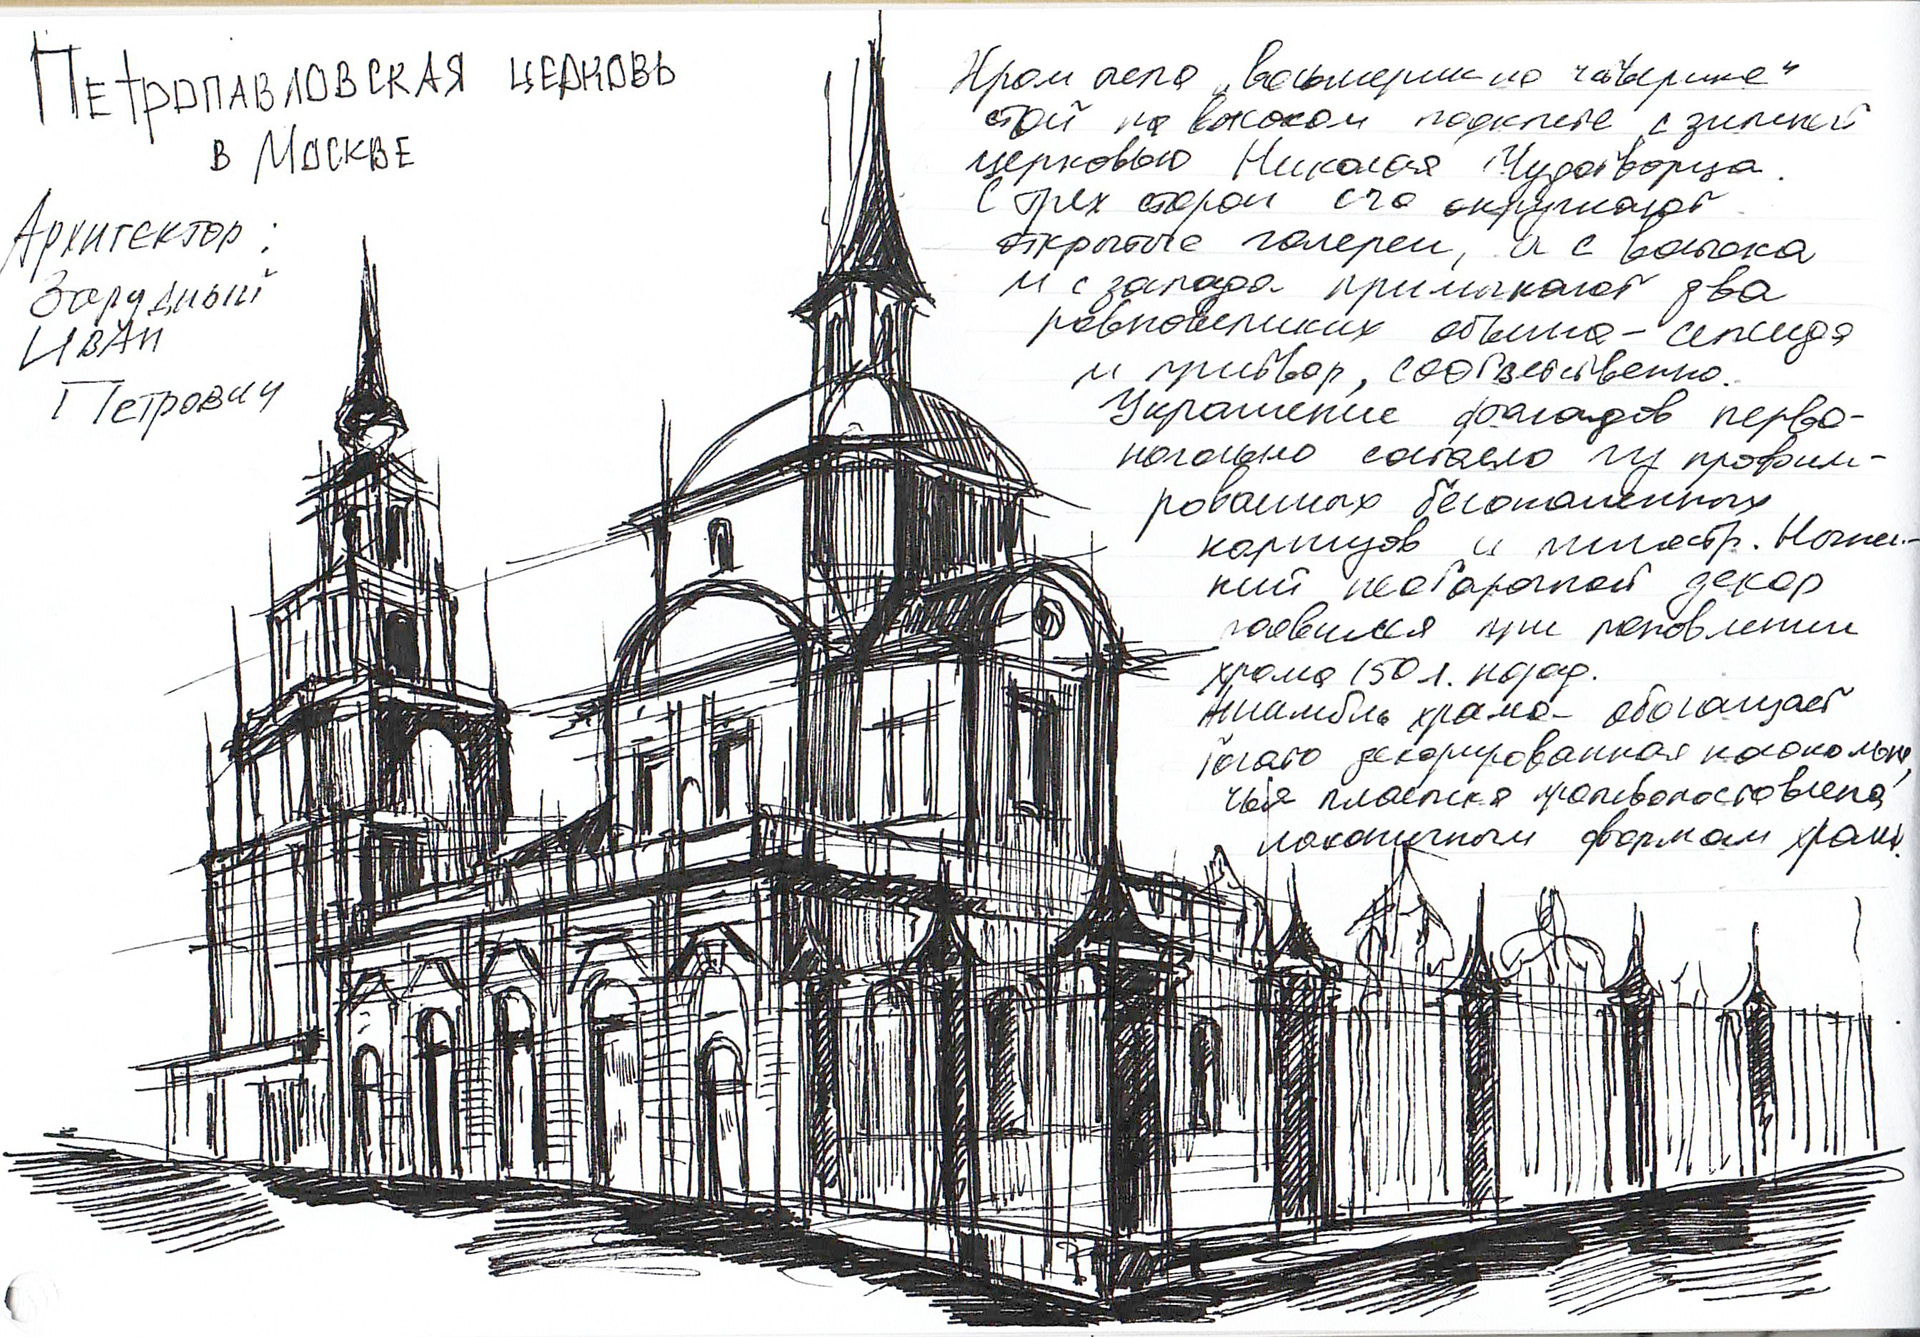 Петропавловская церковь
в Москве
Архитектор:
Зарудный
Иван
Петрович
Храм типа „восьмерик на четверике“
стоит на высоком подклете с зимней
церковью Николая Чудотворца.
С трех сторон его окружают
открытые галереи, и с востока
и с запада примыкают два
равновеликих объема-
и притвор, соответственно.
Украшение фасадов перво-
начально состояло из профили-
рованных белокаменных
карнизов и пилястр. Нынеш-
ний необарочный декор
появился при поновлении
храма 150 л. назад.
Ансамбль храма- обогащает
богато декорированная колокольня,
чья пластика противопоставлена
лаконичным формам храма.